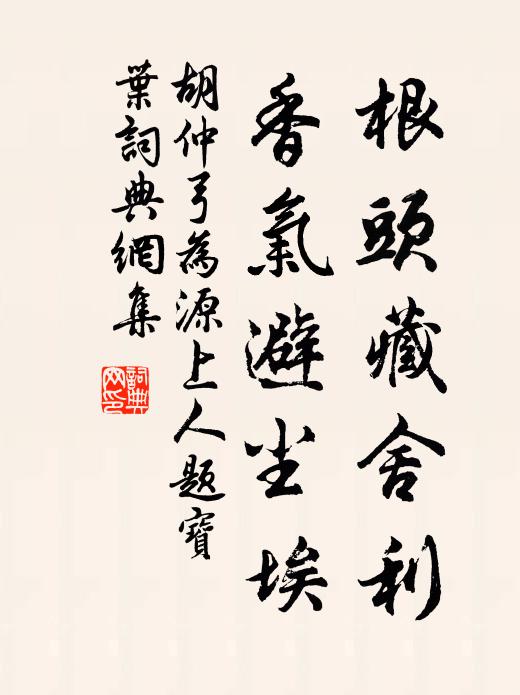 根頭藏舍利
香氣避尘埃
胡仲弓為源上人題寶
葉詞典網集
詞典网印